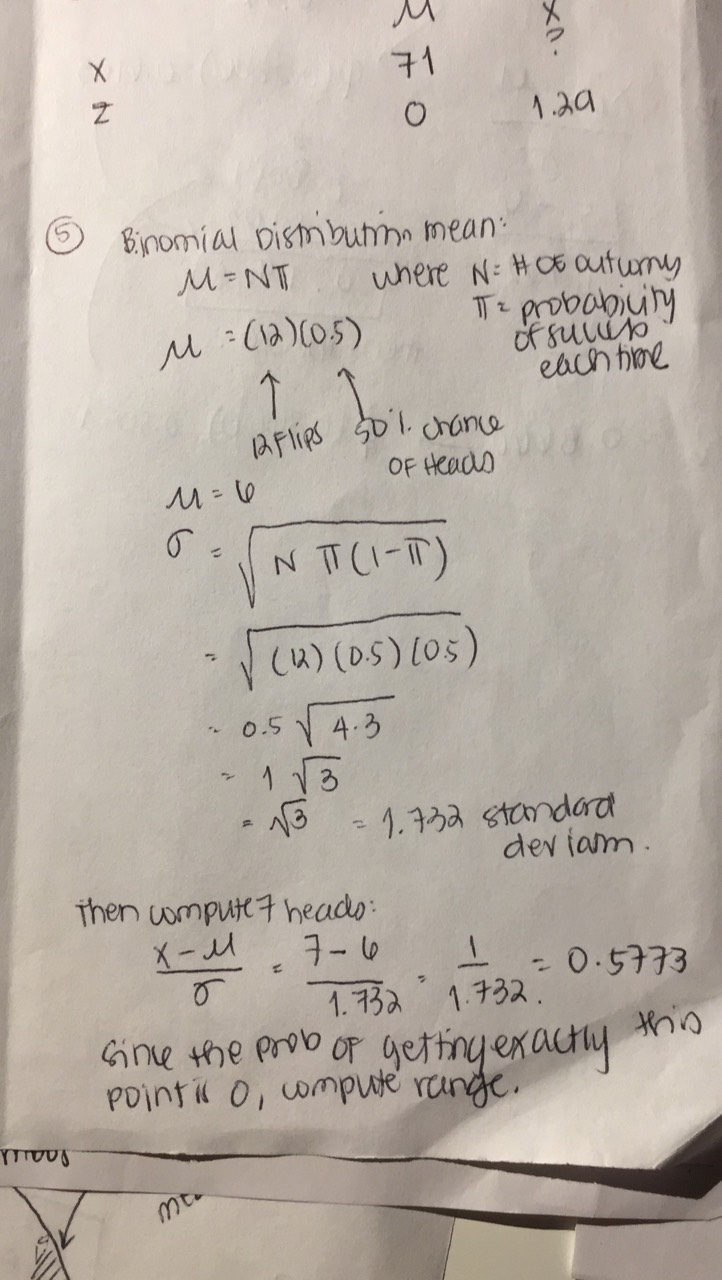 μ X
X 71 ?
Z 0 1.29
⑤ Binomial Distribution mean:
μ = Nπ where N = # of outcomes
π = probability
of success
each time
μ = (12)(0.5)
↑ ↑
12 flips 50% chance
of Heads
μ = 6
σ = √(N π(1-π))
= √((12)(0.5)(0.5))
= 0.5 √(4·3)
= 1 √3
= √3 = 1.732 standard
deviation.
Then compute 7 heads:
(x-μ)/σ = (7-6)/1.732 = 1/1.732. = 0.5773
Since the prob of getting exactly this
point is 0, compute range.